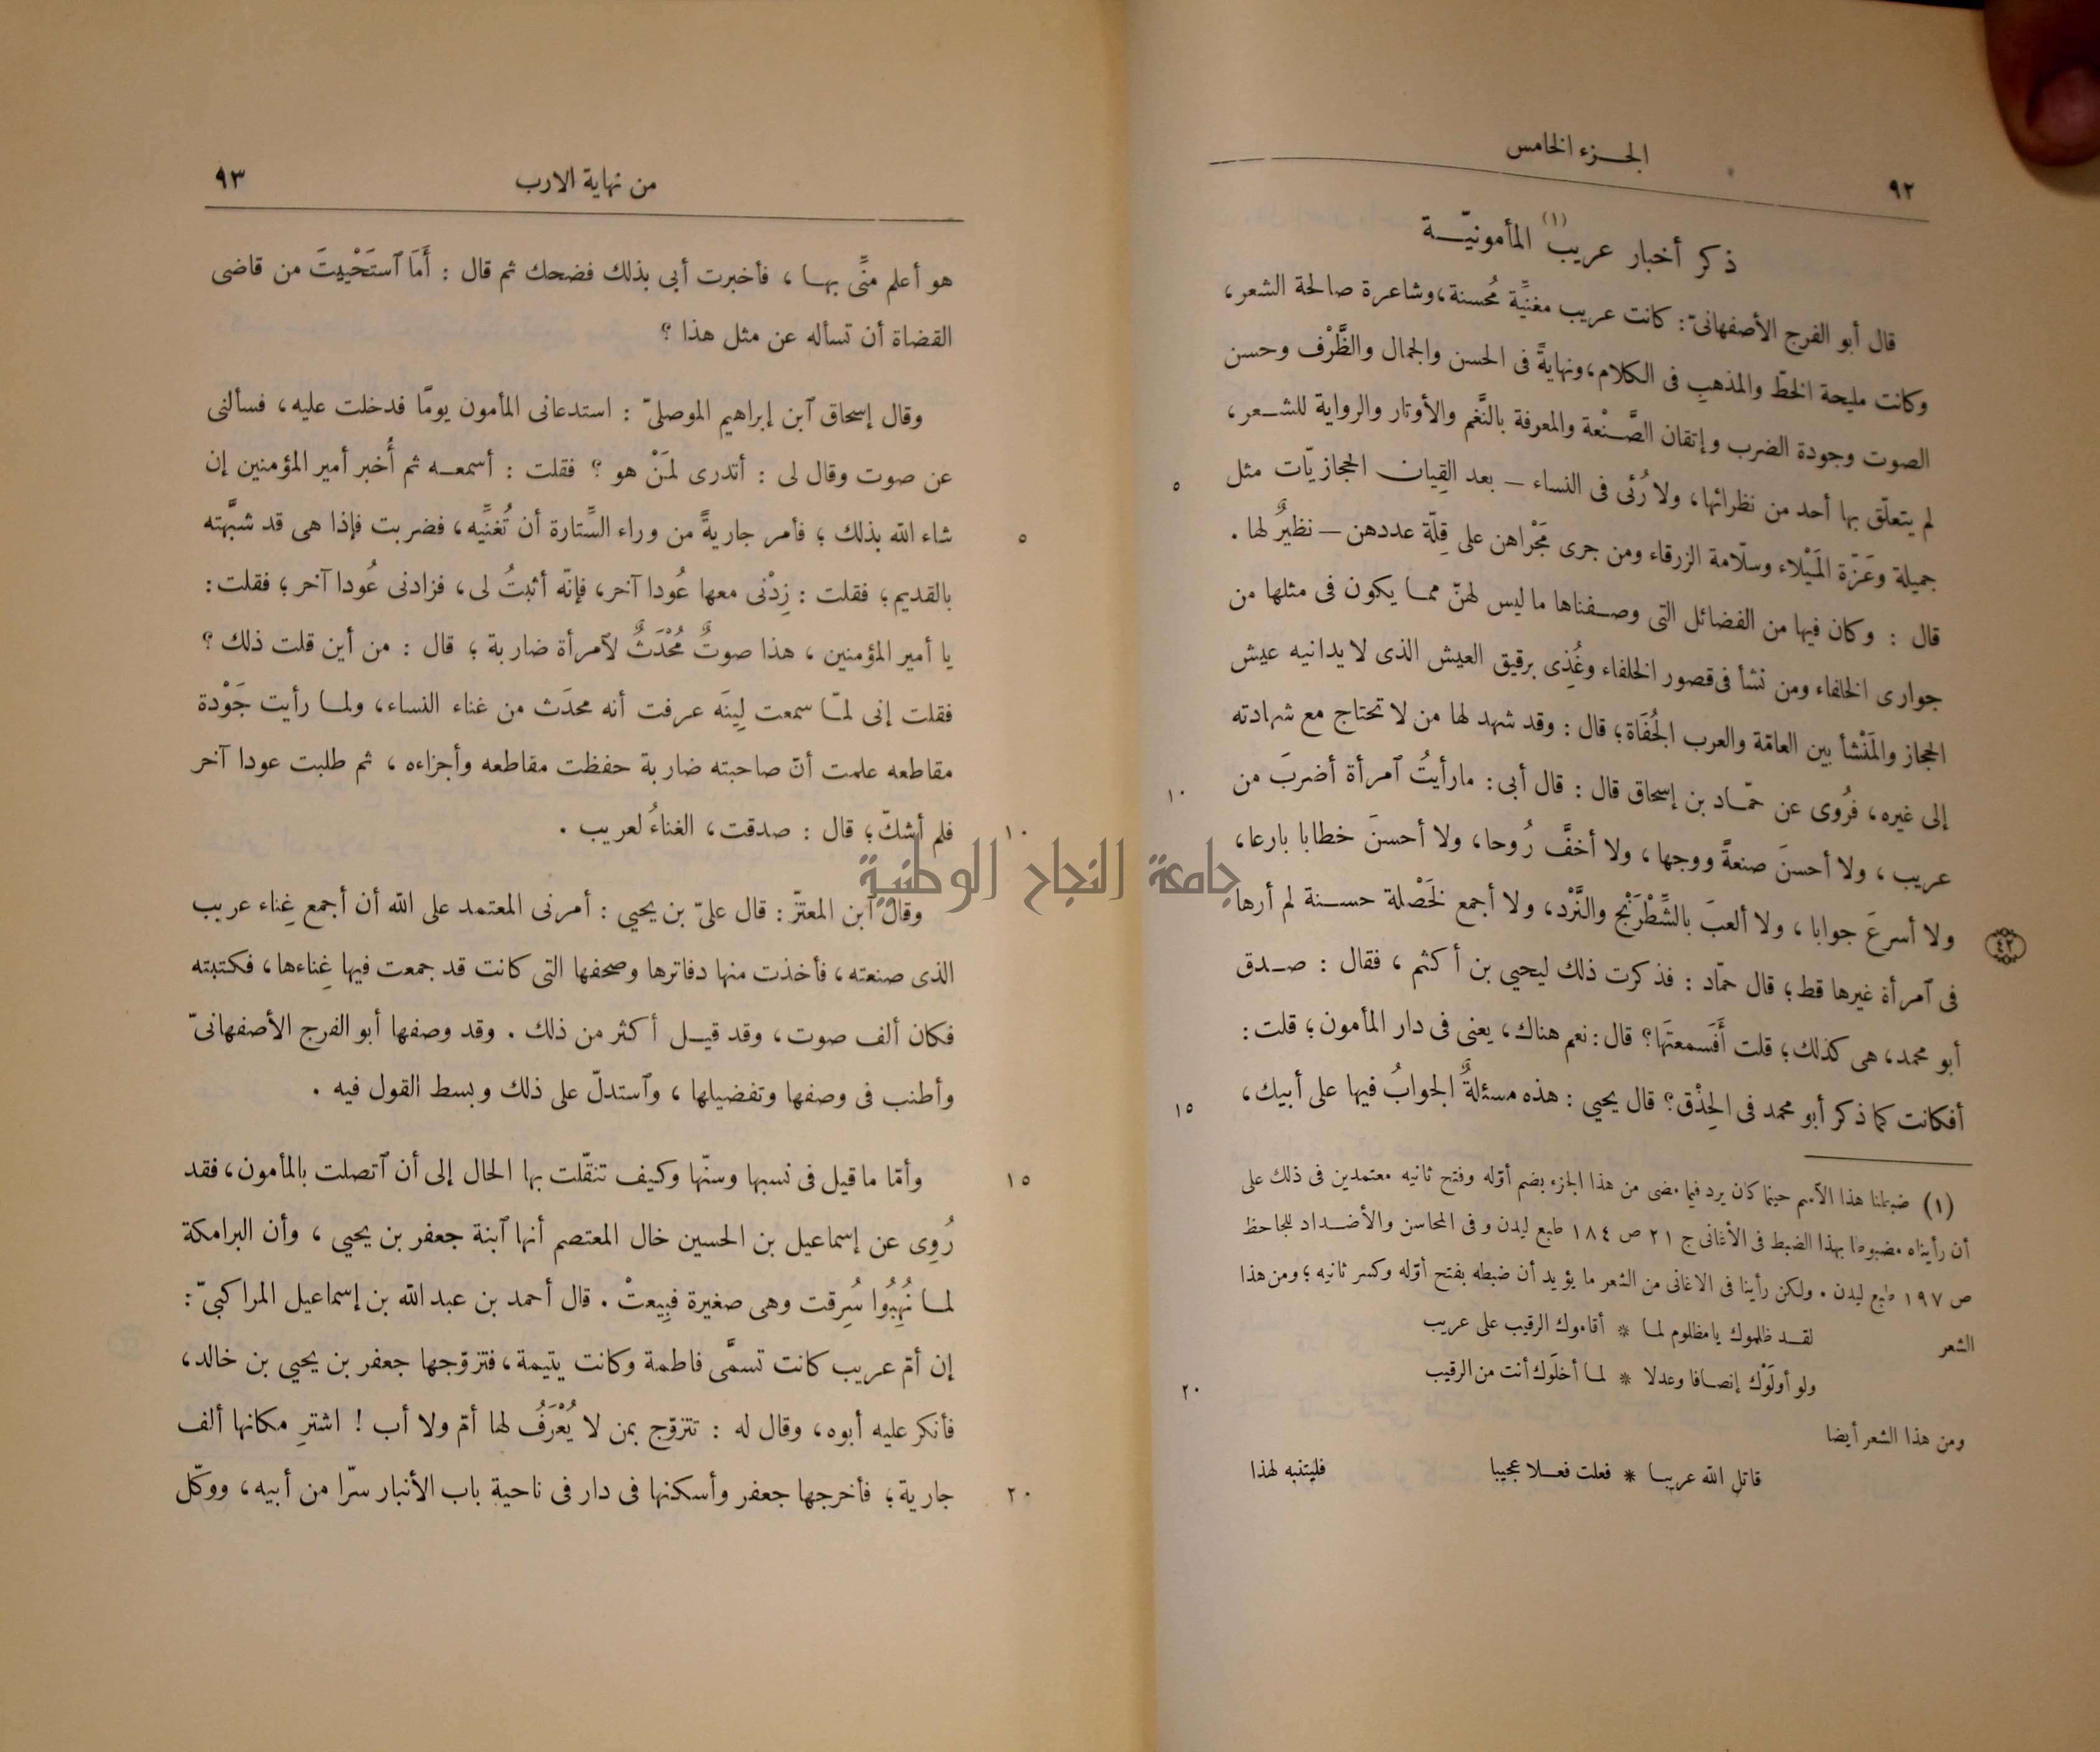 الجزء الخامس
٩٢
ذكر أخبار عريب (١) المأمونيّة
قال أبو الفرج الأصفهانىّ: كانت عريب مغنيِّة مُحسنة، وشاعرة صالحة الشعر،
وكانت مليحة الخطّ والمذهبِ فى الكلام، ونهايةً فى الحسن والجمال والظَّرْف وحسن
الصوت وجودة الضرب وإتقان الصَّنْعة والمعرفة بالنَّغم والأوتار والرواية للشعر،
لم يتعلّق بها أحد من نظرائها، ولا رُئى فى النساء – بعد القِيان الحجازيّات مثل
٥
جميلة وعَزّة المَيْلاء وسلّامة الزرقاء ومن جرى مَجْراهن على قِلّة عددهن – نظيرٌ لها .
قال : وكان فيها من الفضائل التى وصفناها ما ليس لهنّ مما يكون فى مثلها من
جوارى الخلفاء ومن نشأ فى قصور الخلفاء وغُذِى برقيق العيش الذى لا يدانيه عيش
الحجاز والمَنْشأ بين العامّة والعرب الجُفَاة؛ قال : وقد شهد لها من لا تحتاج مع شهادته
إلى غيره، فرُوى عن حمّاد بن إسحاق قال : قال أبى : ما رأيتُ ٱمرأة أضربَ من
١٠
عريب ، ولا أحسنَ صنعةً ووجها، ولا أخفَّ رُوحا، ولا أحسنَ خطابا بارعا،
ولا أسرعَ جوابا ، ولا ألعبَ بالشِّطْرَنْج والنَّرْد، ولا أجمع لخَصْلة حسنة لم أرها
٤٢
فى ٱمرأة غيرها قط؛ قال حمّاد : فذكرت ذلك ليحيى بن أكثم ، فقال : صدق
أبو محمد، هى كذلك؛ قلت أَفَسمعتَها؟ قال : نعم هناك، يعنى فى دار المأمون؛ قلت :
أفكانت كما ذكر أبو محمد فى الحِذْق؟ قال يحيى : هذه مسئلةٌ الجوابُ فيها على أبيك،
١٥
(١) ضبطنا هذا الاسم حيثما كان يرد فيما مضى من هذا الجزء بضم أوّله وفتح ثانيه معتمدين فى ذلك على
أن رأيناه مضبوطا بهذا الضبط فى الأغانى ج ٢١ ص ١٨٤ طبع ليدن وفى المحاسن والأضداد للجاحظ
ص ١٩٧ طبع ليدن . ولكن رأينا فى الاغانى من الشعر ما يؤيد أن ضبطه بفتح أوّله وكسر ثانيه ؛ ومن هذا
الشعر
لقد ظلموك يا مظلوم لما * أقاموك الرقيب على عريب
ولو أولَوْك إنصافا وعدلا * لما أخلَوك أنت من الرقيب
٢٠
ومن هذا الشعر أيضا
قاتل الله عريبا * فعلت فعلا عجيبا فليتنبه لهذا
من نهاية الارب
٩٣
هو أعلم منَّى بها ، فأخبرت أبى بذلك فضحك ثم قال : أَمَا ٱستَحْييتَ من قاضى
القضاة أن تسأله عن مثل هذا ؟
وقال إسحاق ٱبن إبراهيم الموصلىّ : استدعانى المأمون يومًا فدخلت عليه، فسألنى
عن صوت وقال لى : أتدرى لمَنْ هو ؟ فقلت : أسمعه ثم أُخبر أمير المؤمنين إن
شاء الله بذلك ؛ فأمر جاريةً من وراء السِّتارة أن تُغنِّيه، فضربت فإذا هى قد شبَّهته
٥
بالقديم؛ فقلت : زِدْنى معها عُودا آخر، فإنّه أثبتُ لى، فزادنى عُودا آخر؛ فقلت :
يا أمير المؤمنين ، هذا صوتٌ مُحْدَثٌ لٱمرأة ضاربة ؛ قال : من أين قلت ذلك ؟
فقلت إنى لمّا سمعت لِينَه عرفت أنه محدَث من غناء النساء، ولما رأيت جَوْدة
مقاطعه علمت أنّ صاحبته ضاربة حفظت مقاطعه وأجزاءه ، ثم طلبت عودا آخر
فلم أشكّ؛ قال : صدقت، الغناءُ لعريب .
١٠
وقال ٱبن المعتزّ : قال علىّ بن يحيى : أمرنى المعتمد على الله أن أجمع غِناء عريب
الذى صنعته ، فأخذت منها دفاترها وصحفها التى كانت قد جمعت فيها غِناءها، فكتبته
فكان ألف صوت، وقد قيل أكثر من ذلك . وقد وصفها أبو الفرج الأصفهانىّ
وأطنب فى وصفها وتفضيلها ، وٱستدلّ على ذلك وبسط القول فيه .
وأمّا ما قيل فى نسبها وسنّها وكيف تنقّلت بها الحال إلى أن ٱتصلت بالمأمون، فقد
١٥
رُوِى عن إسماعيل بن الحسين خال المعتصم أنها ٱبنة جعفر بن يحيى ، وأن البرامكة
لما نُهِبُوا سُرِقت وهى صغيرة فبِيعتْ . قال أحمد بن عبد الله بن إسماعيل المراكبىّ :
إن أمّ عريب كانت تسمَّى فاطمة وكانت يتيمة، فتزوّجها جعفر بن يحيى بن خالد،
فأنكر عليه أبوه، وقال له : تتزوّج بمن لا يُعْرَفُ لها أمّ ولا أب ! اشترِ مكانها ألف
جارية؛ فأخرجها جعفر وأسكنها فى دار فى ناحية باب الأنبار سرّا من أبيه، ووكّل
٢٠
جامعة النجاح الوطنية